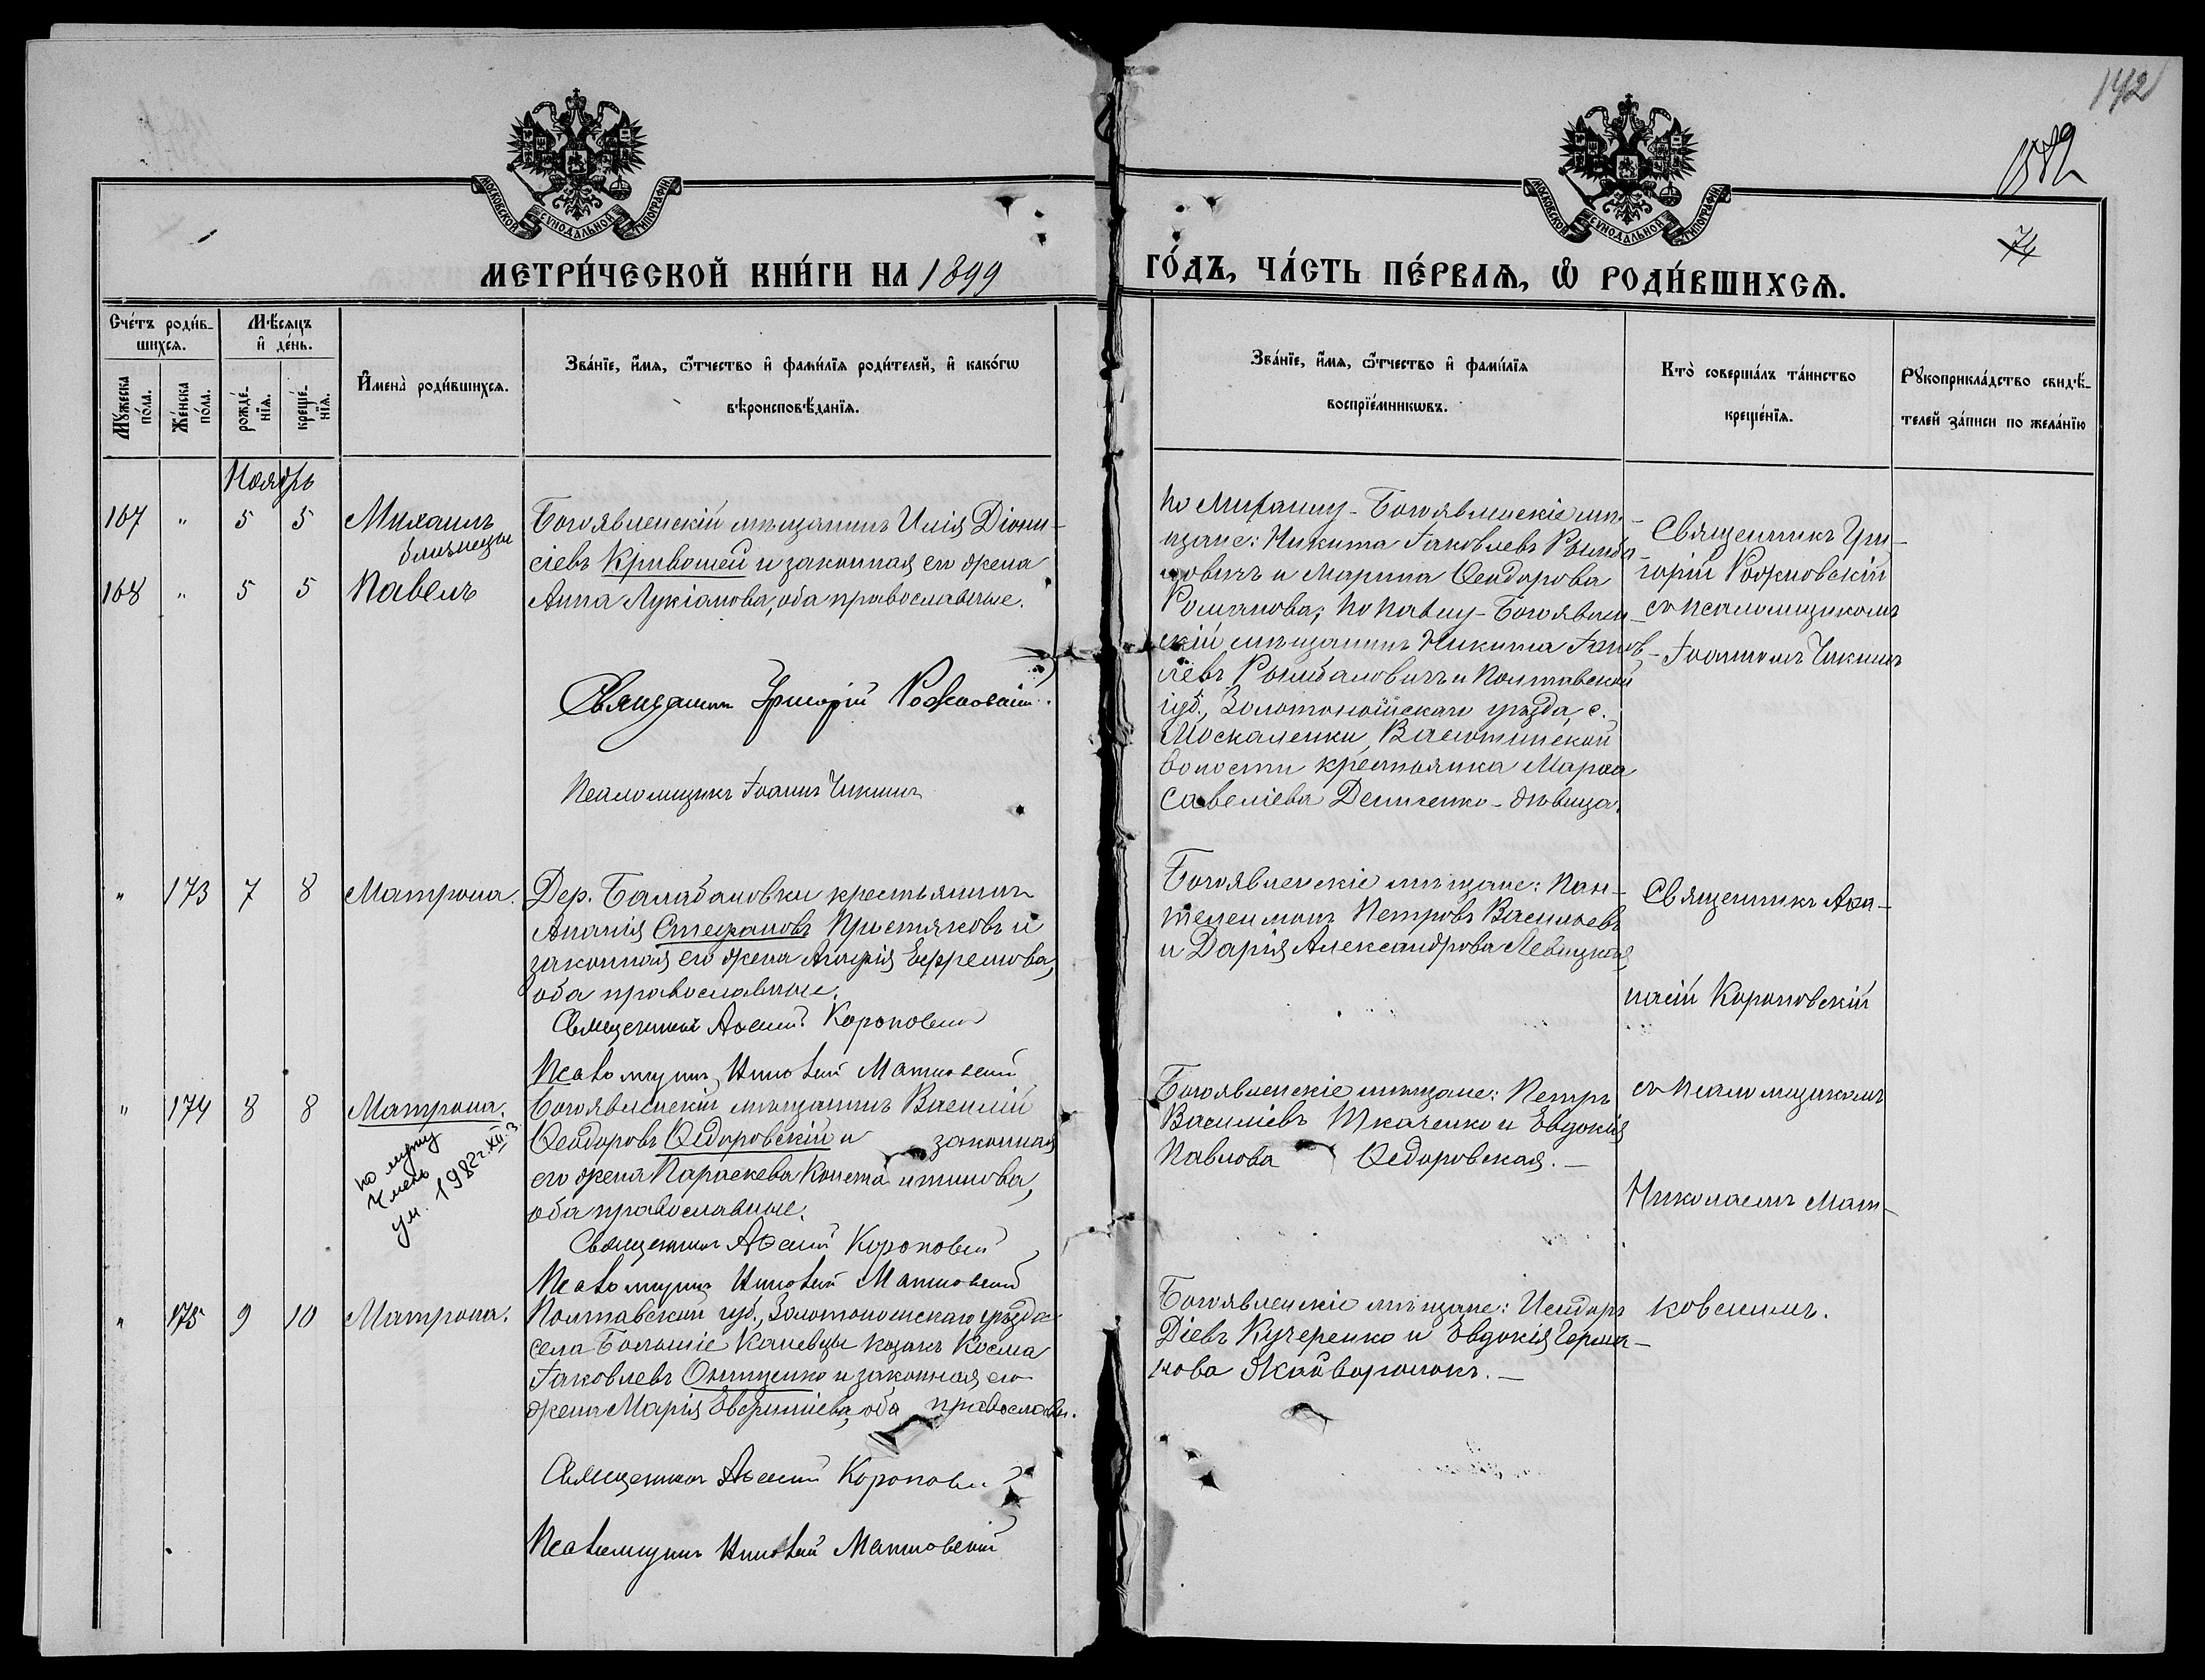 142
74
МОСКОВСКОЙ СУНОДАЛЬНОЙ ТИПОГРАФІИ
МОСКОВСКОЙ СУНОДАЛЬНОЙ ТИПОГРАФІИ
МЕТРИ́ЧЕСКОЙ КНИ́ГИ НА 1899
ГО́ДЪ, ЧА́СТЬ ПЕ́РВАЯ, Ѡ РОДИ́ВШИХСЯ.
Сче́тъ роди́в-
шихся.
Мѣ́сяцъ
и҆ де́нь.
Му́жеска по́ла.
Же́нска по́ла.
рожде́-
нїя.
креще́-
нїя.
И҆мена̀ роди́вшихся.
Зва́нїе, и҆́мя, ѻ҆́тчество и҆ фамѝлїя роди́телей, и҆ како́гѡ
вѣроисповѣ́данїя.
Зва́нїе, и҆́мя, ѻ҆́тчество и҆ фамѝлїя
воспрїе́мникѡвъ.
Кто̀ соверша́лъ та́инство
креще́нїя.
Рꙋкоприкла́дство свидѣ́-
телей за́писи по жела́нїю
Ноябрь
167 " 5 5 Михаилъ
близнецы
168 " 5 5 Павелъ
Богоявленскій мѣщанинъ Илія Діони-
сіевъ Кривошей и законная его жена
Анна Лукіанова, оба православные.
Священникъ Григорій Рожновскій.
Псаломщикъ Іоаннъ Чикинъ
По Михаилу - Богоявленскіе мѣ-
щане: Никита Іаковлевъ Рымба-
ловичъ и Марина Ѳеодорова
Романова; по Павлу - Богоявлен-
скій мѣщанинъ Никита Іаков-
левъ Рымбаловичъ и Полтавской
губ., Золотоношскаго уѣзда, с.
Москаленки, Васютинской
волости крестьянка Марѳа
Савеліева Денисенко - дѣвица.
Священникъ Гри-
горій Рожновскій
съ псаломщикомъ
Іоанномъ Чикинъ
" 173 7 8 Матрона.
Дер. Балабановки крестьянинъ
Ананія Стефановъ Пристяковъ и
законная его жена Агафія Ефремова,
оба православные.
Священникъ Аѳан. Короповскій
Псаломщикъ Николай Матковскій
Богоявленскіе мѣщане: Пан-
телеимонъ Петровъ Васильевъ
и Дарія Александрова Левицкая,
Священникъ Аѳа-
насій Короповскій
съ псаломщикомъ
Николаемъ Мат-
ковскимъ.
" 174 8 8 Матрона.
по мужу
ум. 1982 г. XII 3.
Богоявленскій мѣщанинъ Василій
Ѳеодоровъ Ѳедоровскій и законная
его жена Параскева Константинова,
оба православные.
Священникъ Аѳанасій Короповскій
Псаломщикъ Николай Матковскій
Богоявленскіе мѣщане: Петръ
Василіевъ Ткаченко и Евдокія
Павлова Ѳедоровская. —
" 175 9 10 Матрона.
Полтавской губ., Золотоношскаго уѣзда
села Большіе Каневцы козакъ Косма
Іаковлевъ Онищенко и законная его
жена Марія Евфиміева, оба православн.
Священникъ Аѳанасій Короповскій
Псаломщикъ Николай Матковскій
Богоявленскіе мѣщане: Исидоръ
Діевъ Кучеренко и Евдокія Герма-
нова Жайворонокъ. —